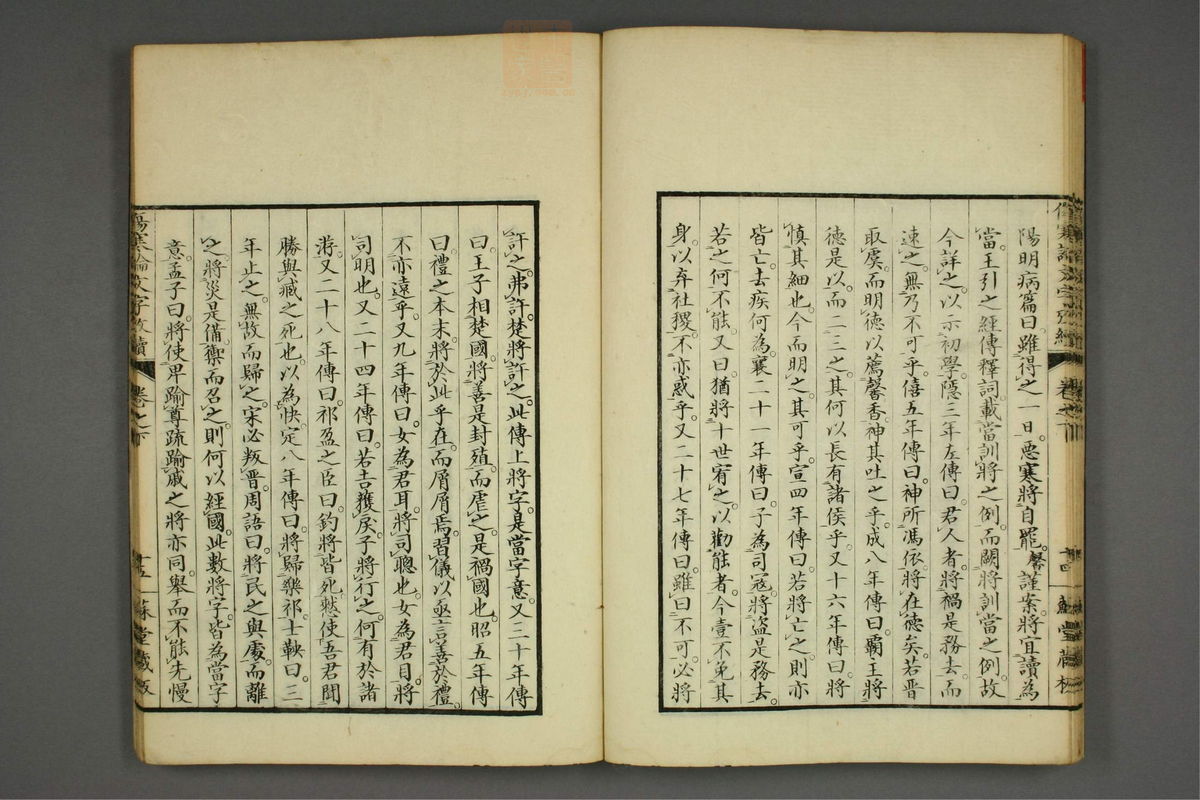 陽明病篇曰。雖得之一日。惡寒將自罷。馨謹案。將宜讀為
當。王引之經傳釋詞載當訓將之例。而闕將訓當之例。故
今詳之。以示初學。隱三年左傳曰。君人者。將禍是務去。而
速之。無乃不可乎。僖五年傳曰。神所馮依。將在德矣。若晉
取虞。而明德以薦馨香。神其吐之乎。成八年傳曰。霸王將
德是以。而二三之。其何以長有諸侯乎。又十六年傳曰。將
慎其細也。今而明之。其可乎。宣四年傳曰。若將亡之。則亦
皆亡。去疾何為。襄二十一年傳曰。子為司寇。將盜是務去。
若之何不能。又曰。猶將十世宥之。以勸能者。今壹不免其
身。以弃社稷。不亦惑乎。又二十七年傳曰。雖曰不可。必將
許之。弗許。楚將許之。此傳上將字。是當字意。又三十年傳
曰。王子相楚國。將善是封殖。而虐之。是禍國也。昭五年傳
曰。禮之本末。將於此乎在。而屑屑焉。習儀以亟。言善於禮。
不亦遠乎。又九年傳曰。女為君耳。將司聰也。女為君目。將
司明也。又二十四年傳曰。若吉獲戾。子將行之。何有於諸
游。又二十八年傳曰。祁盈之臣曰。鈞將皆死。憖使吾君聞
勝與臧之死也。以為快。定八年傳曰。將歸樂祁。士鞅曰。三
年止之。無故而歸之。宋必叛晉。周語曰。將民之與處。而離
之。將災是備禦。而召之。則何以經國。此數將字。皆為當字
意。孟子曰。將使卑踰尊。疏踰戚之將亦同。舉而不能先慢
傷寒論文字攷續 卷之下 十四 蘇堂藏板
傷寒論文字攷續 卷之下 十五 蘇堂藏板